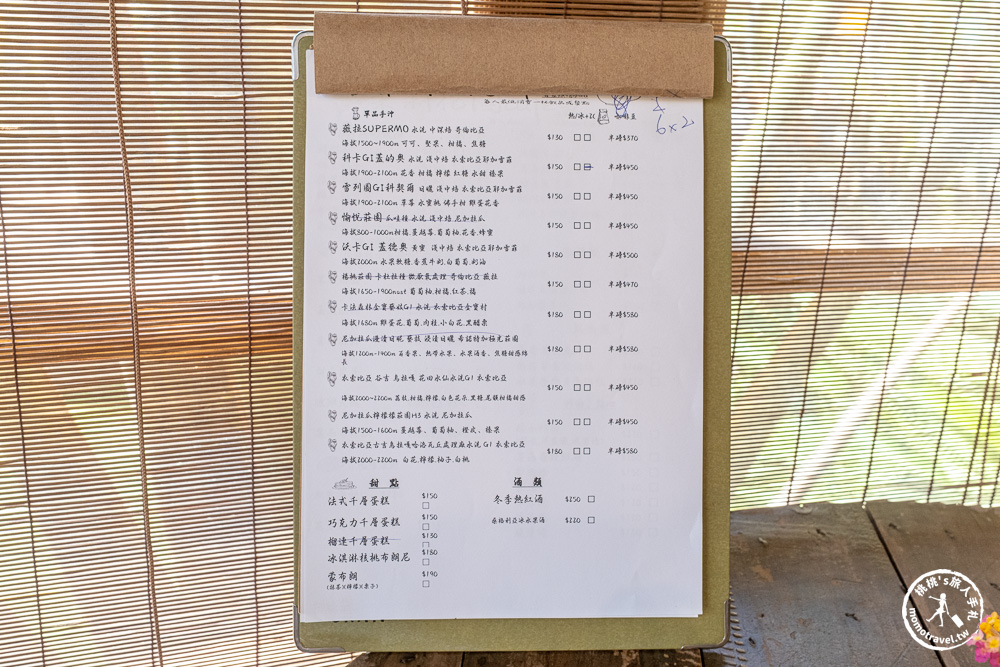 每人最低消費一杯飲品或餐點
單品手沖 熱/冰+20 咖啡豆
6x2
薇拉SUPERMO 水洗 中深焙 哥倫比亞 $130 半磅$370
海拔1500~1900m 可可、堅果、柑橘、焦糖
科卡G1蓋的奧 水洗 淺中焙 衣索比亞耶加雪菲 $150 半磅$450
海拔1900-2100m 花香 柑橘 檸檬 紅糖 水甜 榛果
雪列圖G1科契爾 日曬 淺中焙 衣索比亞耶加雪菲 $150 半磅$450
海拔1900-2100m 草莓 水蜜桃 佛手柑 雞蛋花香
愉悅莊園 瓜哇種 水洗 淺中焙 尼加拉瓜 $150 半磅$450
海拔800-1000m柑橘.蔓越莓.葡萄柚.花香.蜂蜜
沃卡G1 蓋德奧 黃蜜 淺中焙 衣索比亞耶加雪菲 $180 半磅$500
海拔2000m 水果軟糖.香蕉牛奶.白葡萄.奶油
楊桃莊園 卡杜拉種 微厭氧處理 哥倫比亞 薇拉 $150 半磅$470
海拔1650-1900mast 葡萄柚.柑橘.紅茶.橘
卡法森林金寶藝妓G1 水洗 衣索比亞金寶村 $180 半磅$580
海拔1680m 雞蛋花.葡萄.肉桂.小白花.黑醋栗
尼加拉瓜漫漫日昵 藝妓 浸漬日曬 希諾特加極光莊園 $180 半磅$580
海拔1200m-1400m 百香果、熱帶水果、水果酒香、焦糖甜感綿
長
衣索比亞 谷吉 烏拉嘎 花田水仙水洗G1 衣索比亞 $150 半磅$450
海拔2000~2200m 荔枝.柑橘.檸檬.白色花朵.黑糖.尾韻柑橘甜感
尼加拉瓜檸檬檬莊園M3 水洗 尼加拉瓜 $150 半磅$450
海拔1500-1600m 蔓越莓、葡萄柚、橙皮、榛果
衣索比亞古吉烏拉嘎哈洛瓦丘處理廠水洗 G1 衣索比亞 $180 半磅$580
海拔2000-2200m 白花.檸檬.柚子.白桃
甜點
法式千層蛋糕 $150
巧克力千層蛋糕 $150
榴連千層蛋糕 $130
冰淇淋核桃布朗尼 $180
蒙布朗 $190
(抹茶X檸檬X栗子)
酒類
冬季熱紅酒 $250
桑格利亞冰水果酒 $220
桃桃's旅人手札
momotravel.tw